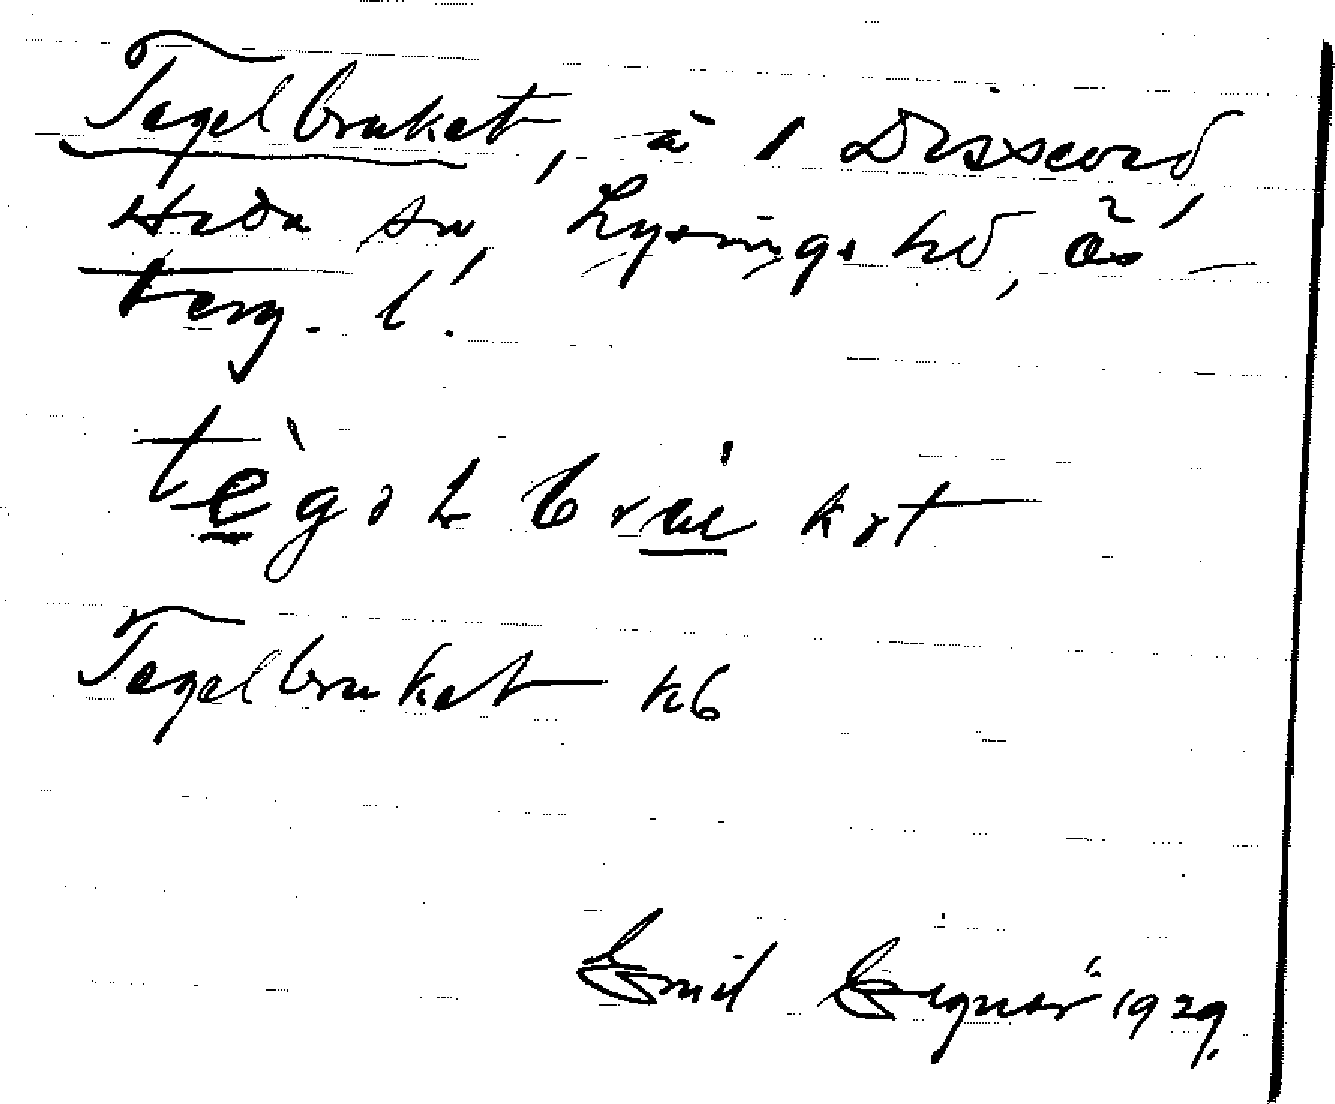 Tegelbruket, å 1 Disevid
Heda sn, Lysings hd, Ös-
terg. l.
tègəl brú kət
Tegelbruket kb
Emil Egnér 1929.